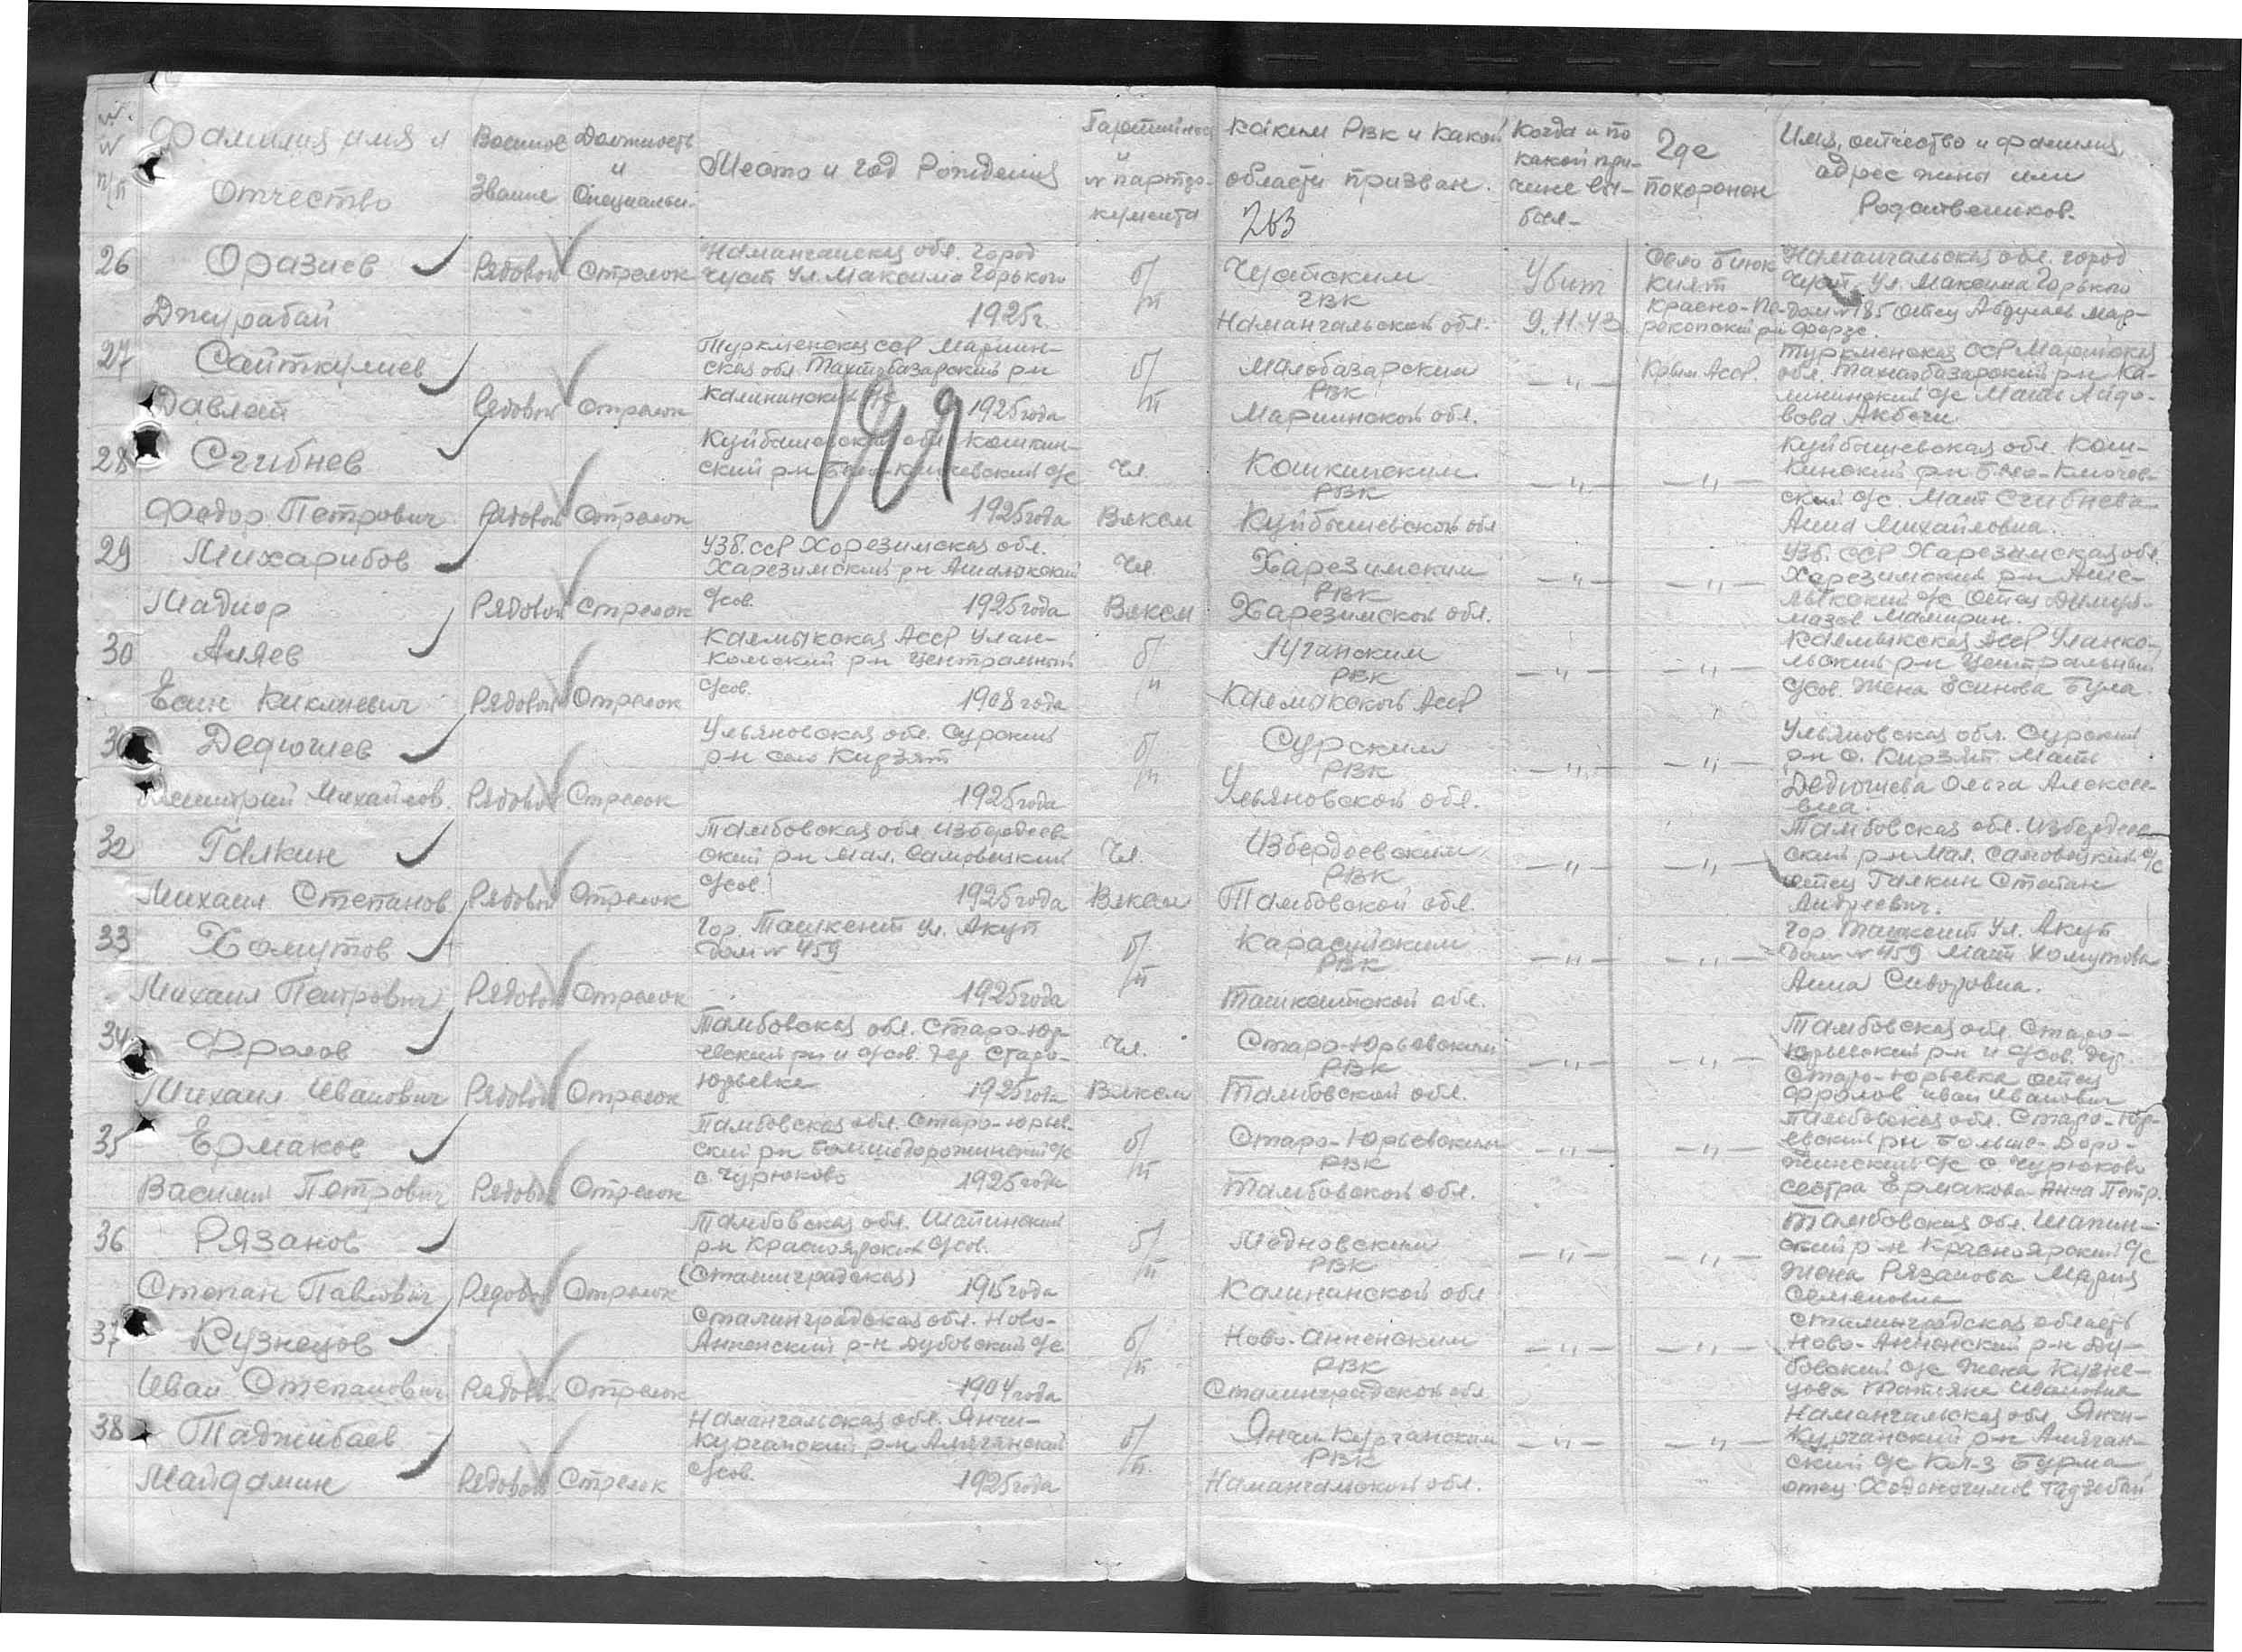 № № п/п
Фамилия имя и Отчество
Военное Звание
Должность и Специальн.
Место и год Рождения
Партийность и № партдокумента
Каким РВК и какой области призван.
263
Когда и по какой причине выбыл
Где похоронен
Имя, отчество и фамилия, адрес жены или Родственников.
26 Оразиев Джурабай
Рядовой Стрелок
Наманганская обл. город
Чуст ул. Максима Горького
1925г.
б/п
Чустским
РВК
Намангальской обл.
Убит
9.11.43
Село Биюк
Кият
Красно-Пе-
рекопский р-н
Крым АССР.
Намангальская обл. город
Чуст ул. Максима Горького
дом №185 Отец Абдулаев Мар-
27 Сайткулиев Давлет
Рядовой Стрелок
Туркменская ССР Мариин-
ская обл. Тахтобазарский р-н
Калининский с/с
1925 года
б/п
РВК
Мариинской обл.
— " —
Туркменская ССР Марийская
обл. Тахтобазарский р-н Ка-
лининский с/с Мать
28 Сгибнев
Федор Петрович Рядовой Стрелок
Куйбышевская обл. Кошкин-
ский р-н с/с
1925 года
149
Чл. Влксм
Кошкинским
РВК
Куйбышевской обл
— " — — " —
Куйбышевская обл. Кош-
кинский р-н Бело-Ключев-
ский с/с. Мать Сгибнева
Анна Михайловна.
29 Михарибов
Мадиор Рядовой Стрелок
Узб. ССР Хорезимская обл.
Харезимский р-н
с/сов. 1925 года
Чл. Влксм
Харезимским
РВК
Харезимской обл.
— " — — " —
Узб. ССР Харезимская обл.
Харезимский р-н
с/с Отец
30 Аляев
Есин Рядовой Стрелок
Калмыкская АССР Улан-
Кольский р-н Центральный
с/сов. 1908 года
б/п
РВК
Калмыкской АССР
— " — — " —
Калмыкская АССР Уланко-
льский р-н Центральный
с/сов. Жена Есинова Була.
31 Дедюшев
Дмитрий Михайлов. Рядовой Стрелок
Ульяновская обл. Сурский
р-н село Кирзят
1925 года
б/п
Сурским
РВК
Ульяновской обл.
— " — — " —
Ульяновская обл. Сурский
р-н с. Кирзят Мать
Дедюшева Ольга Алексе-
вна.
32 Галкин
Михаил Степанов Рядовой Стрелок
Тамбовская обл. Избердеев-
ский р-н Мал. Самовецкий
с/сов. 1925 года
Чл. Влксм
Избердеевским
РВК
Тамбовской обл.
— " — — " —
Тамбовская обл. Избердеев-
ский р-н Мал. Самовецкий с/с
отец Галкин Степан
Андреевич.
33 Хомутов
Михаил Петрович Рядовой Стрелок
Гор. Ташкент ул. Акуп
дом № 459
1925 года
б/п
Карасуйским
РВК
Ташкентской обл.
— " — — " —
Гор. Ташкент ул. Акуп
Дом № 459 Мать Хомутова
Анна Сидоровна.
34 Фролов
Михаил Иванович Рядовой Стрелок
Тамбовская обл. Старо-Юр-
евский р-н и с/сов. дер. Старо-
Юрьевка 1925 года
Чл. Влксм
Старо-Юрьевским
РВК
Тамбовской обл.
— " — — " —
Тамбовская обл. Старо-
Юрьевский р-н и с/сов. дер.
Старо-Юрьевка отец
Фролов Иван Иванович
35 Ермаков
Василий Петрович Рядовой Стрелок
Тамбовская обл. Старо-Юрьев.
ский р-н Большедорожинский с/с
с. Чурюково 1925 года
б/п
Старо-Юрьевским
РВК
Тамбовской обл.
— " — — " —
Тамбовская обл. Старо-Юр-
евский р-н Больше-Доро-
жинский с/с с Чурюково
сестра Ермакова Анна Петр.
36 Рязанов
Степан Павлович Рядовой Стрелок
Тамбовская обл. Шапинский
р-н Красноярский с/сов.
(Сталинградская) 1915 года
б/п
Медновским
РВК
Калининской обл
— " — — " —
Тамбовская обл. Шапин-
ский р-н Красноярский с/с
Жена Рязанова Мария
Семеновна
37 Кузнецов
Иван Степанович Рядовой Стрелок
Сталинградская обл. Ново-
Анненский р-н Дубовский с/с
1904 года
б/п
Ново-Анненским
РВК
Сталинградской обл
— " — — " —
Сталинградская область
Ново-Анненский р-н Ду-
бовский с/с Жена Кузне-
цова Татьяна Ивановна
38 Таджибаев
Майдамин Рядовой Стрелок
Намангальская обл. Янги-
Курганский р-н
с/сов. 1925 года
б/п.
Янги Курганским
РВК
Намангальской обл.
— " — — " —
Намангальская обл. Янги-
Курганский р-н
ский с/с Кл-з Бурма
отец